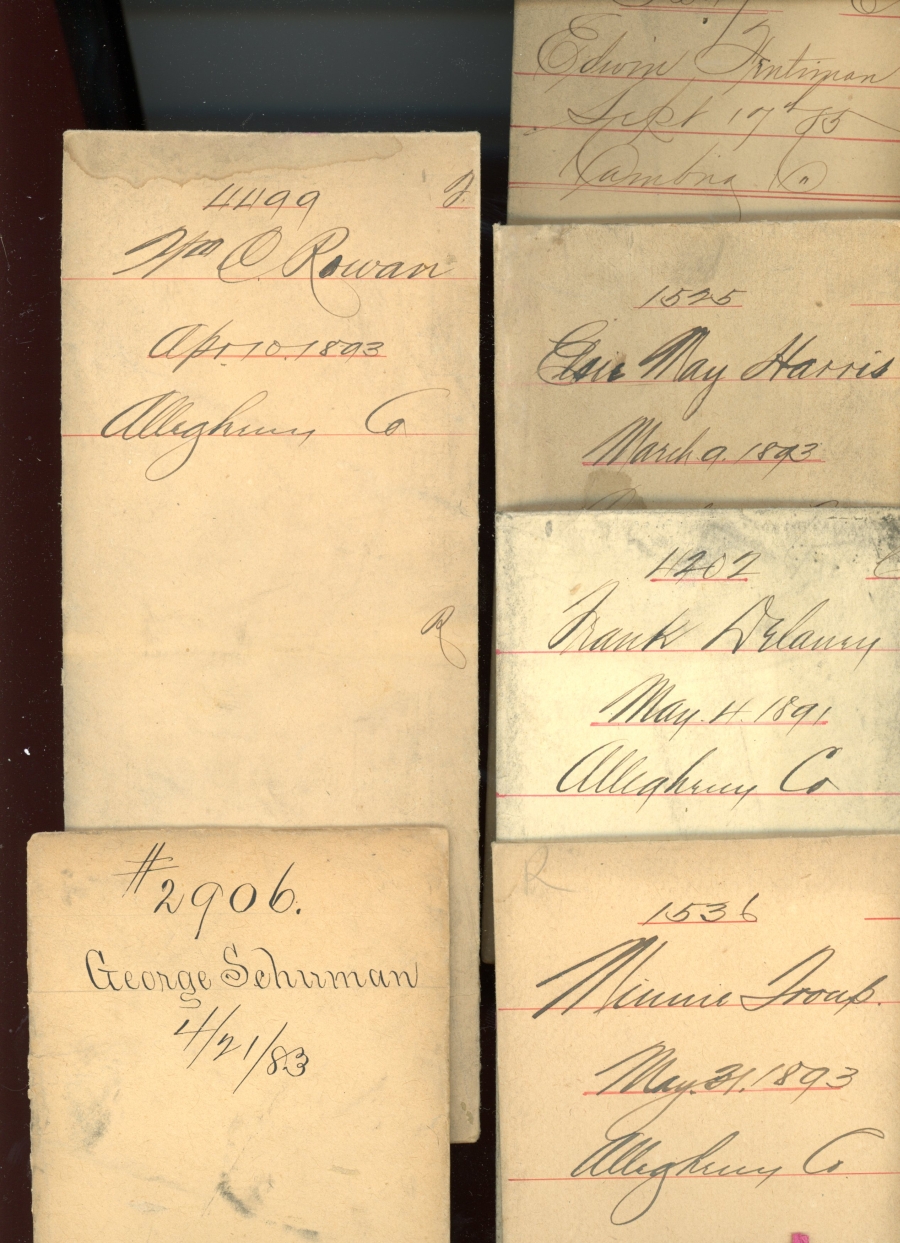 4499
J.
Wm C. Rowan
Apr. 10. 1893
Allegheny Co
R
#2906.
George Schuman
4/21/83
Edwin Fentiman
Sept 17th 85
Cambria Co
1525
Elsie May Harris
March 9. 1893
4202
Frank Delaney
May. 4. 1891
Allegheny Co
R
1536
Minnie Troup.
May. 31. 1893
Allegheny Co